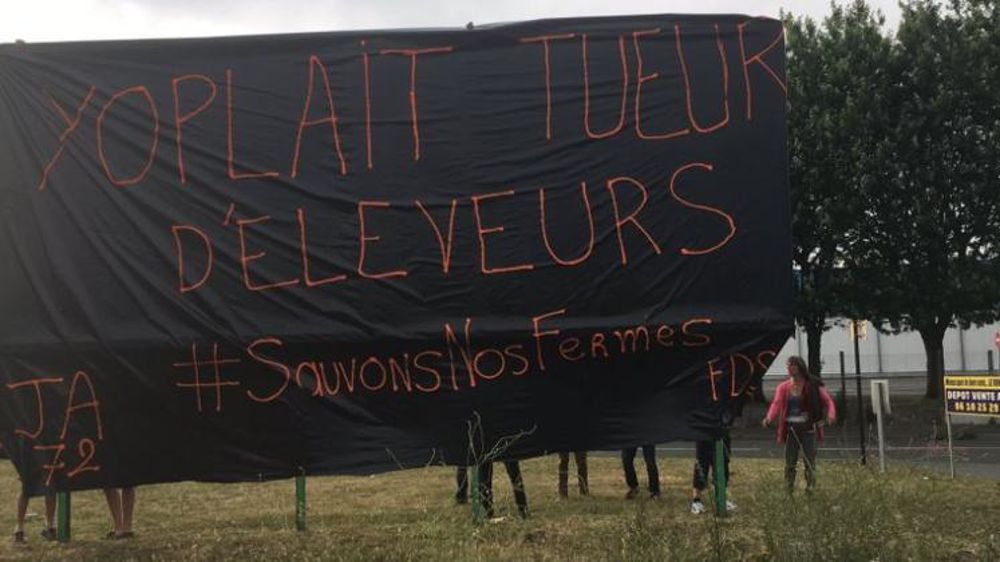 YOPLAiT TUEUR
D'ÉLEVEURS
#SauvonsNosFermes
JA
72
FDS
DEPOT VENTE A